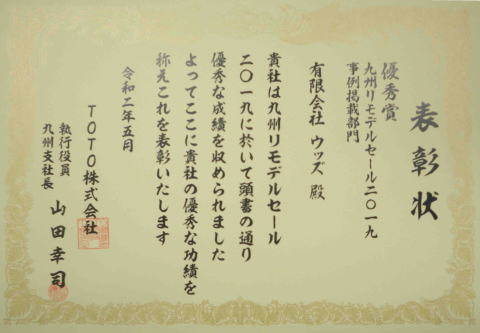 表彰状
優秀賞
九州リモデルセール二〇一九
事例掲載部門
有限会社 ウッズ 殿
貴社は九州リモデルセール
二〇一九に於いて頭書の通り
優秀な成績を収められました
よってここに貴社の優秀な功績を
称えこれを表彰いたします
令和二年五月
TOTO株式会社
執行役員
九州支社長 山田幸司